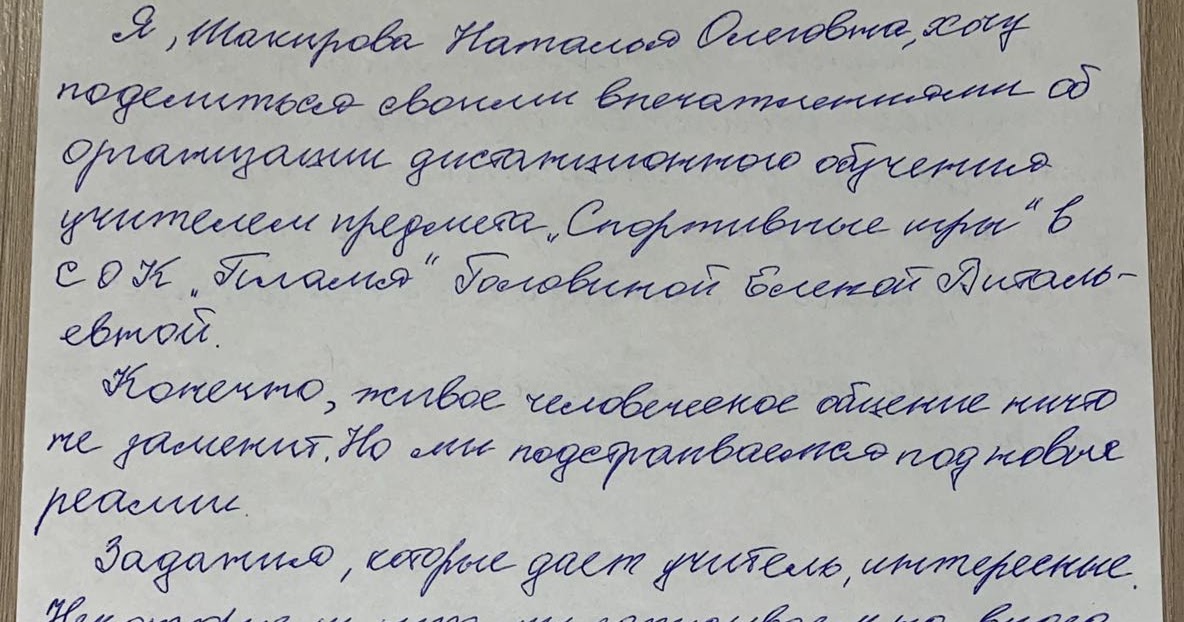 Я, Шакирова Наталья Олеговна, хочу
поделиться своими впечатлениями об
организации дистанционного обучения
учителем предмета „Спортивные игры“ в
СОК „Пламя“ Головиной Еленой Виталь-
евной.
Конечно, живое человеческое общение ничто
не заменит. Но мы подстраиваемся под новые
реалии.
Задания, которые дает учитель, интересные.